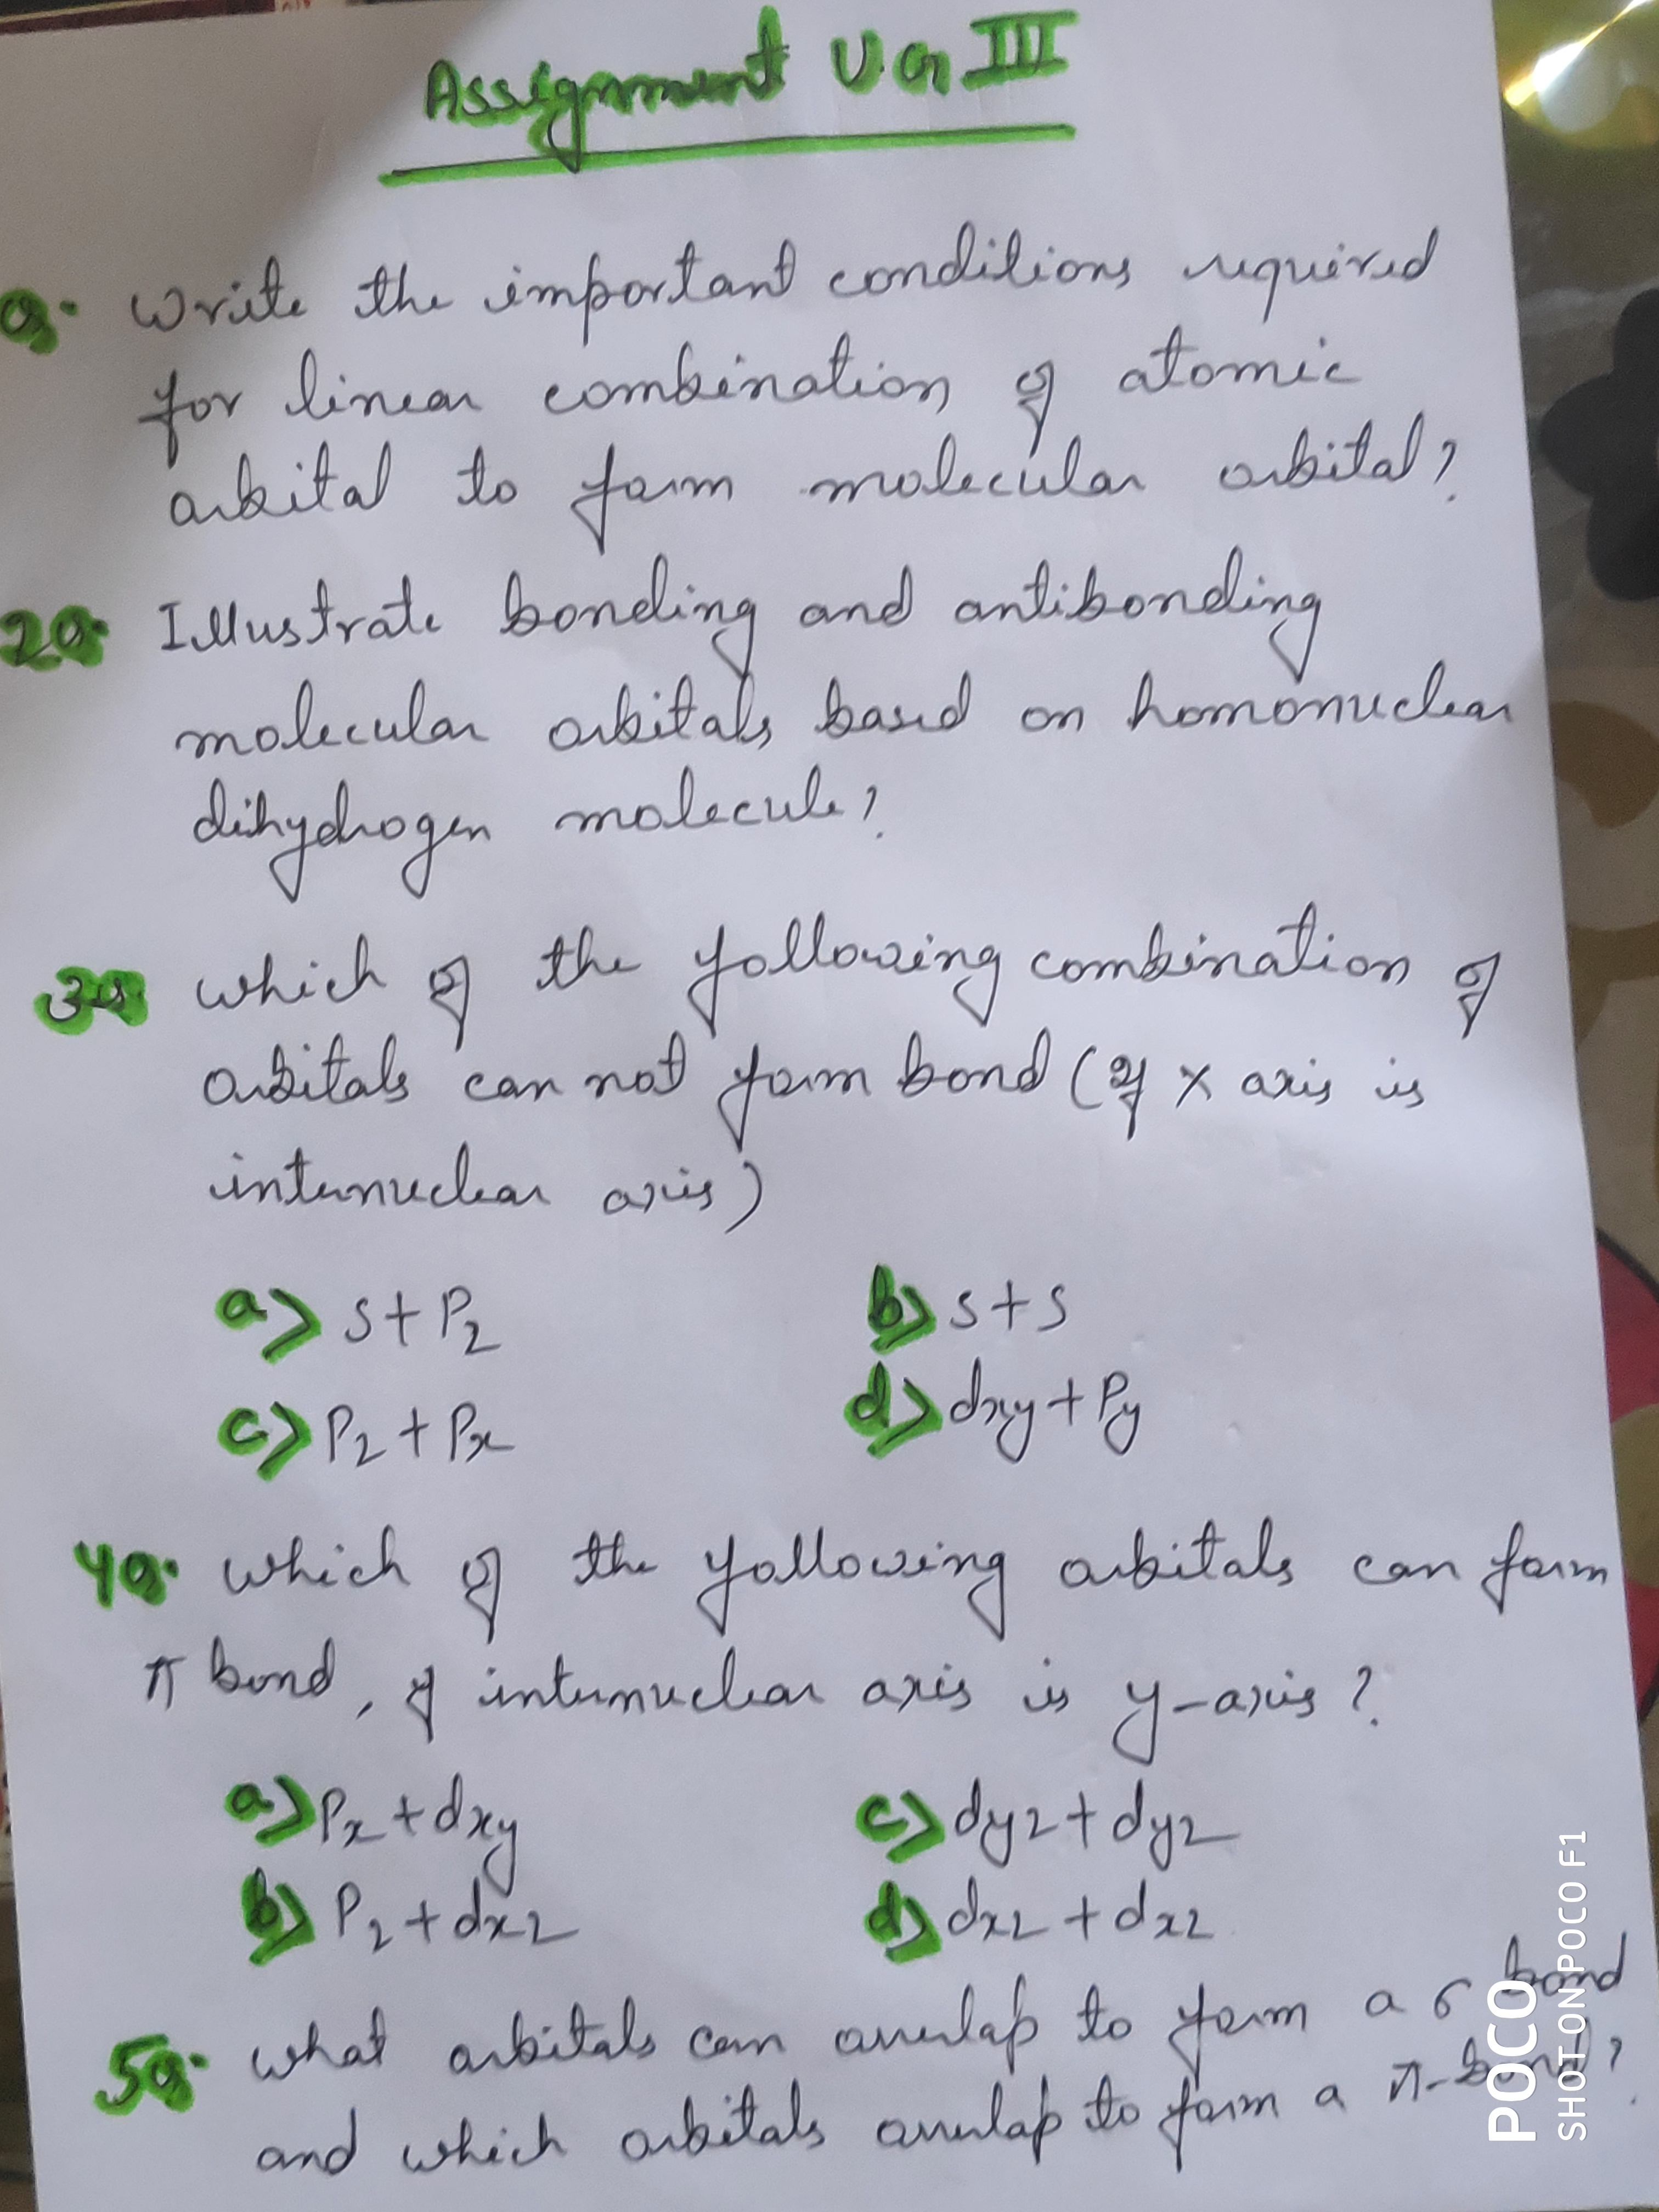 Assignment U.G III
Q. Write the important conditions required
for linear combination of atomic
orbital to form molecular orbital?
2Q. Illustrate bonding and antibonding
molecular orbitals based on homonuclear
dihydrogen molecule?
3Q. Which of the following combination of
orbitals can not form bond (If x axis is
internuclear axis)
a) s + Pz b) s + s
c) Pz + Px d) dxy + Py
4Q. Which of the following orbitals can form
π bond, if internuclear axis is y-axis?
a) Px + dxy c) dyz + dyz
b) Pz + dxz d) dxz + dxz
5Q. What orbitals can overlap to form a σ bond
and which orbitals overlap to form a π-bond?
POCO
SHOT ON POCO F1